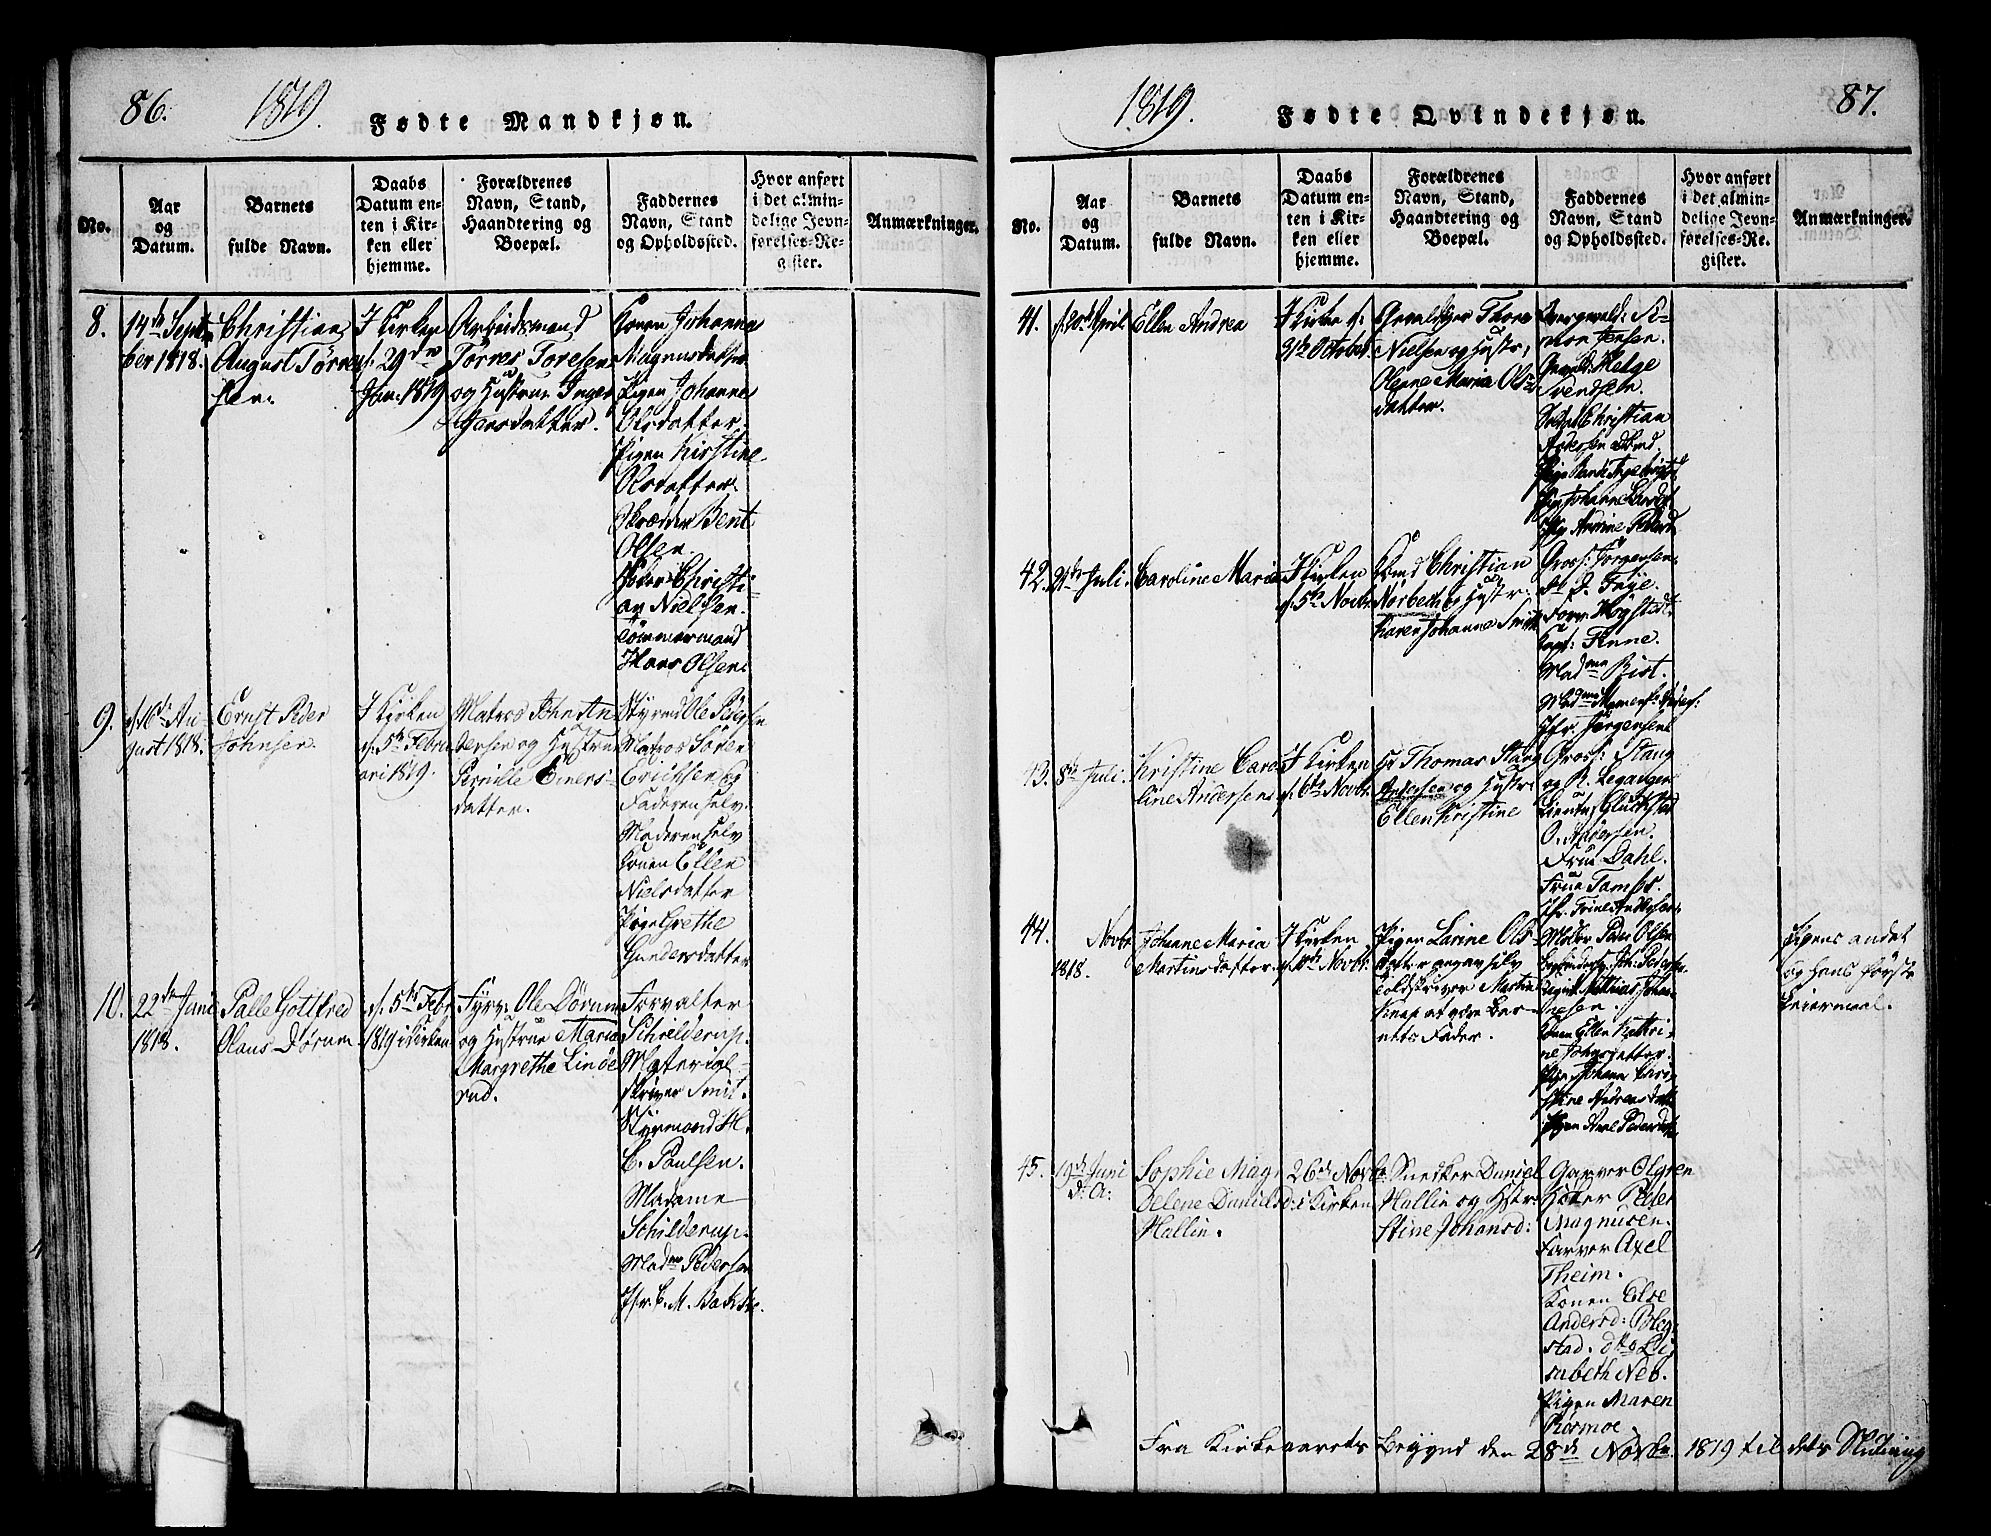 86.
1819.
Fødte Mandkjøn.
No.
Aar
og
Datum.
Barnets
fulde Navn.
Daabs
Datum en-
ten i Kir-
ken eller
hjemme.
Forældrenes
Navn, Stand,
Haandtering og
Boepæl.
Faddernes
Navn, Stand
og Opholdssted.
Hvor anført
i det almin-
delige Jevn-
førelses-Re-
gister.
Anmærkninger.
8.
14de Septem
ber 1818.
Christian
August Tørres
sen.
I Kirken
d. 29de
Jan. 1819
Arbeidsmand
Tørres Toresen
og Hustrue Inger
Hansdatter.
Konen Johanna
Magnusdatter
Pigen Johanna
Olsdatter.
Pigen Kirstine
Olsdatter
Skrædder Bent
Olsen
Christi-
an Nielsen.
Tømmermand
Hans Olsen.
9.
d. 16de Au-
gust 1818.
Ernst Peder
Johnsen.
I Kirken
d. 5te Febru
ari 1819.
Matros John An
dersen og Hustrue
Pernille Einers-
datter.
Styrmd Ole Pedersen
Matros Søren
Erichsen og
Faderen selv.
Moderen selv
Konen Ellen
Nielsdatter
Pige Grethe
Gundersdatter
10.
22de Juni
1818.
Palle Gottfred
Olaus Dørum
d. 5te Febr
1819 i Kirken
Fyrv: Ole Dørum
og Hustrue Maria
Margrethe Lindø
rud.
Forvalter
Schielderup.
Material-
skriver Smit.
Styrmand H.
C. Paulsen.
Madame
Schilderup.
Madme Pedersen
Jfr. C. M. Bakke.
1819.
87.
Fødte Qvindekjøn.
No.
Aar
og
Datum.
Barnets
fulde Navn.
Daabs
Datum en-
ten i Kir-
ken eller
hjemme.
Forældrenes
Navn, Stand,
Haandtering og
Boepæl.
Faddernes
Navn, Stand
og Opholdssted.
Hvor anført
i det almin-
delige Jevn-
førelses-Re-
gister.
Anmærkninger.
41.
d. 20de April
Ellen Andrea
I Kirken d:
31te October
Thore
Nielsen og Hustr,
Olenne Maria Ols
datter.
Si-
mon Jensen.
Helge
Svendsen.
Christian
Pige Johanne
Pig Andrine Peders
42.
Juli.
Caroline Maria
I Kirken
d. 5te Novbr
Christian
Norbech og Hustr:
Karen Johanne Smith
Gross: Jørgensen
J. Foye.
Høgstedt
Capt: Finne.
Madme Bist.
Jfr. Jørgensen
43.
8de Juli.
Kristine Caro
line Andersen
I Kirken
d. 6te Novbr
Hr Thomas Stang
Andersen og Hustr:
Ellen Kristine
Gross: Stang
og R. Leganger
Lieutn: Gluckstad
O. Andersen.
Frue Dahl.
Frue Tambs.
44.
Novbr
1818.
Johanne Maria
Martinsdatter.
I Kirken
Novbr:
Pigen Larine Ols-
datter angav selv
Toldskriver Martin
Knap at være Bar-
nets Fader.
Peder Olsen
Konen Ellen Kathri-
ne Johnsdatter.
Pige Johanna Chri-
stine Andreasdatt
Pigen Anne Pedersdatt
Pigens andet
og hans første
Leiermaal.
45.
19de Juni
d: A:
Sophie Mag
delene Danielsd:
Hallin.
26de Novbr
i Kirken
Snedker Daniel
Hallin og Hstr:
Stine Johansd:
Garver Olgren
Høker Peder
Magnusen.
Farver Axel
Theim.
Konen Else
Andersd: Bleg-
stad. dto Eli-
sabeth Neb.
Pigen Maren
Rosmoe
Fra Kirkeaarets Begynd den 28de Novbr 1819 til dets Slutning